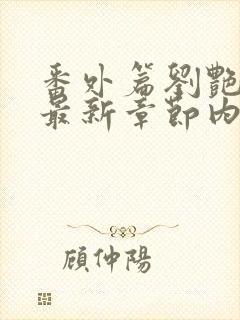 番外篇劉艷
最新章節內
顧仲陽